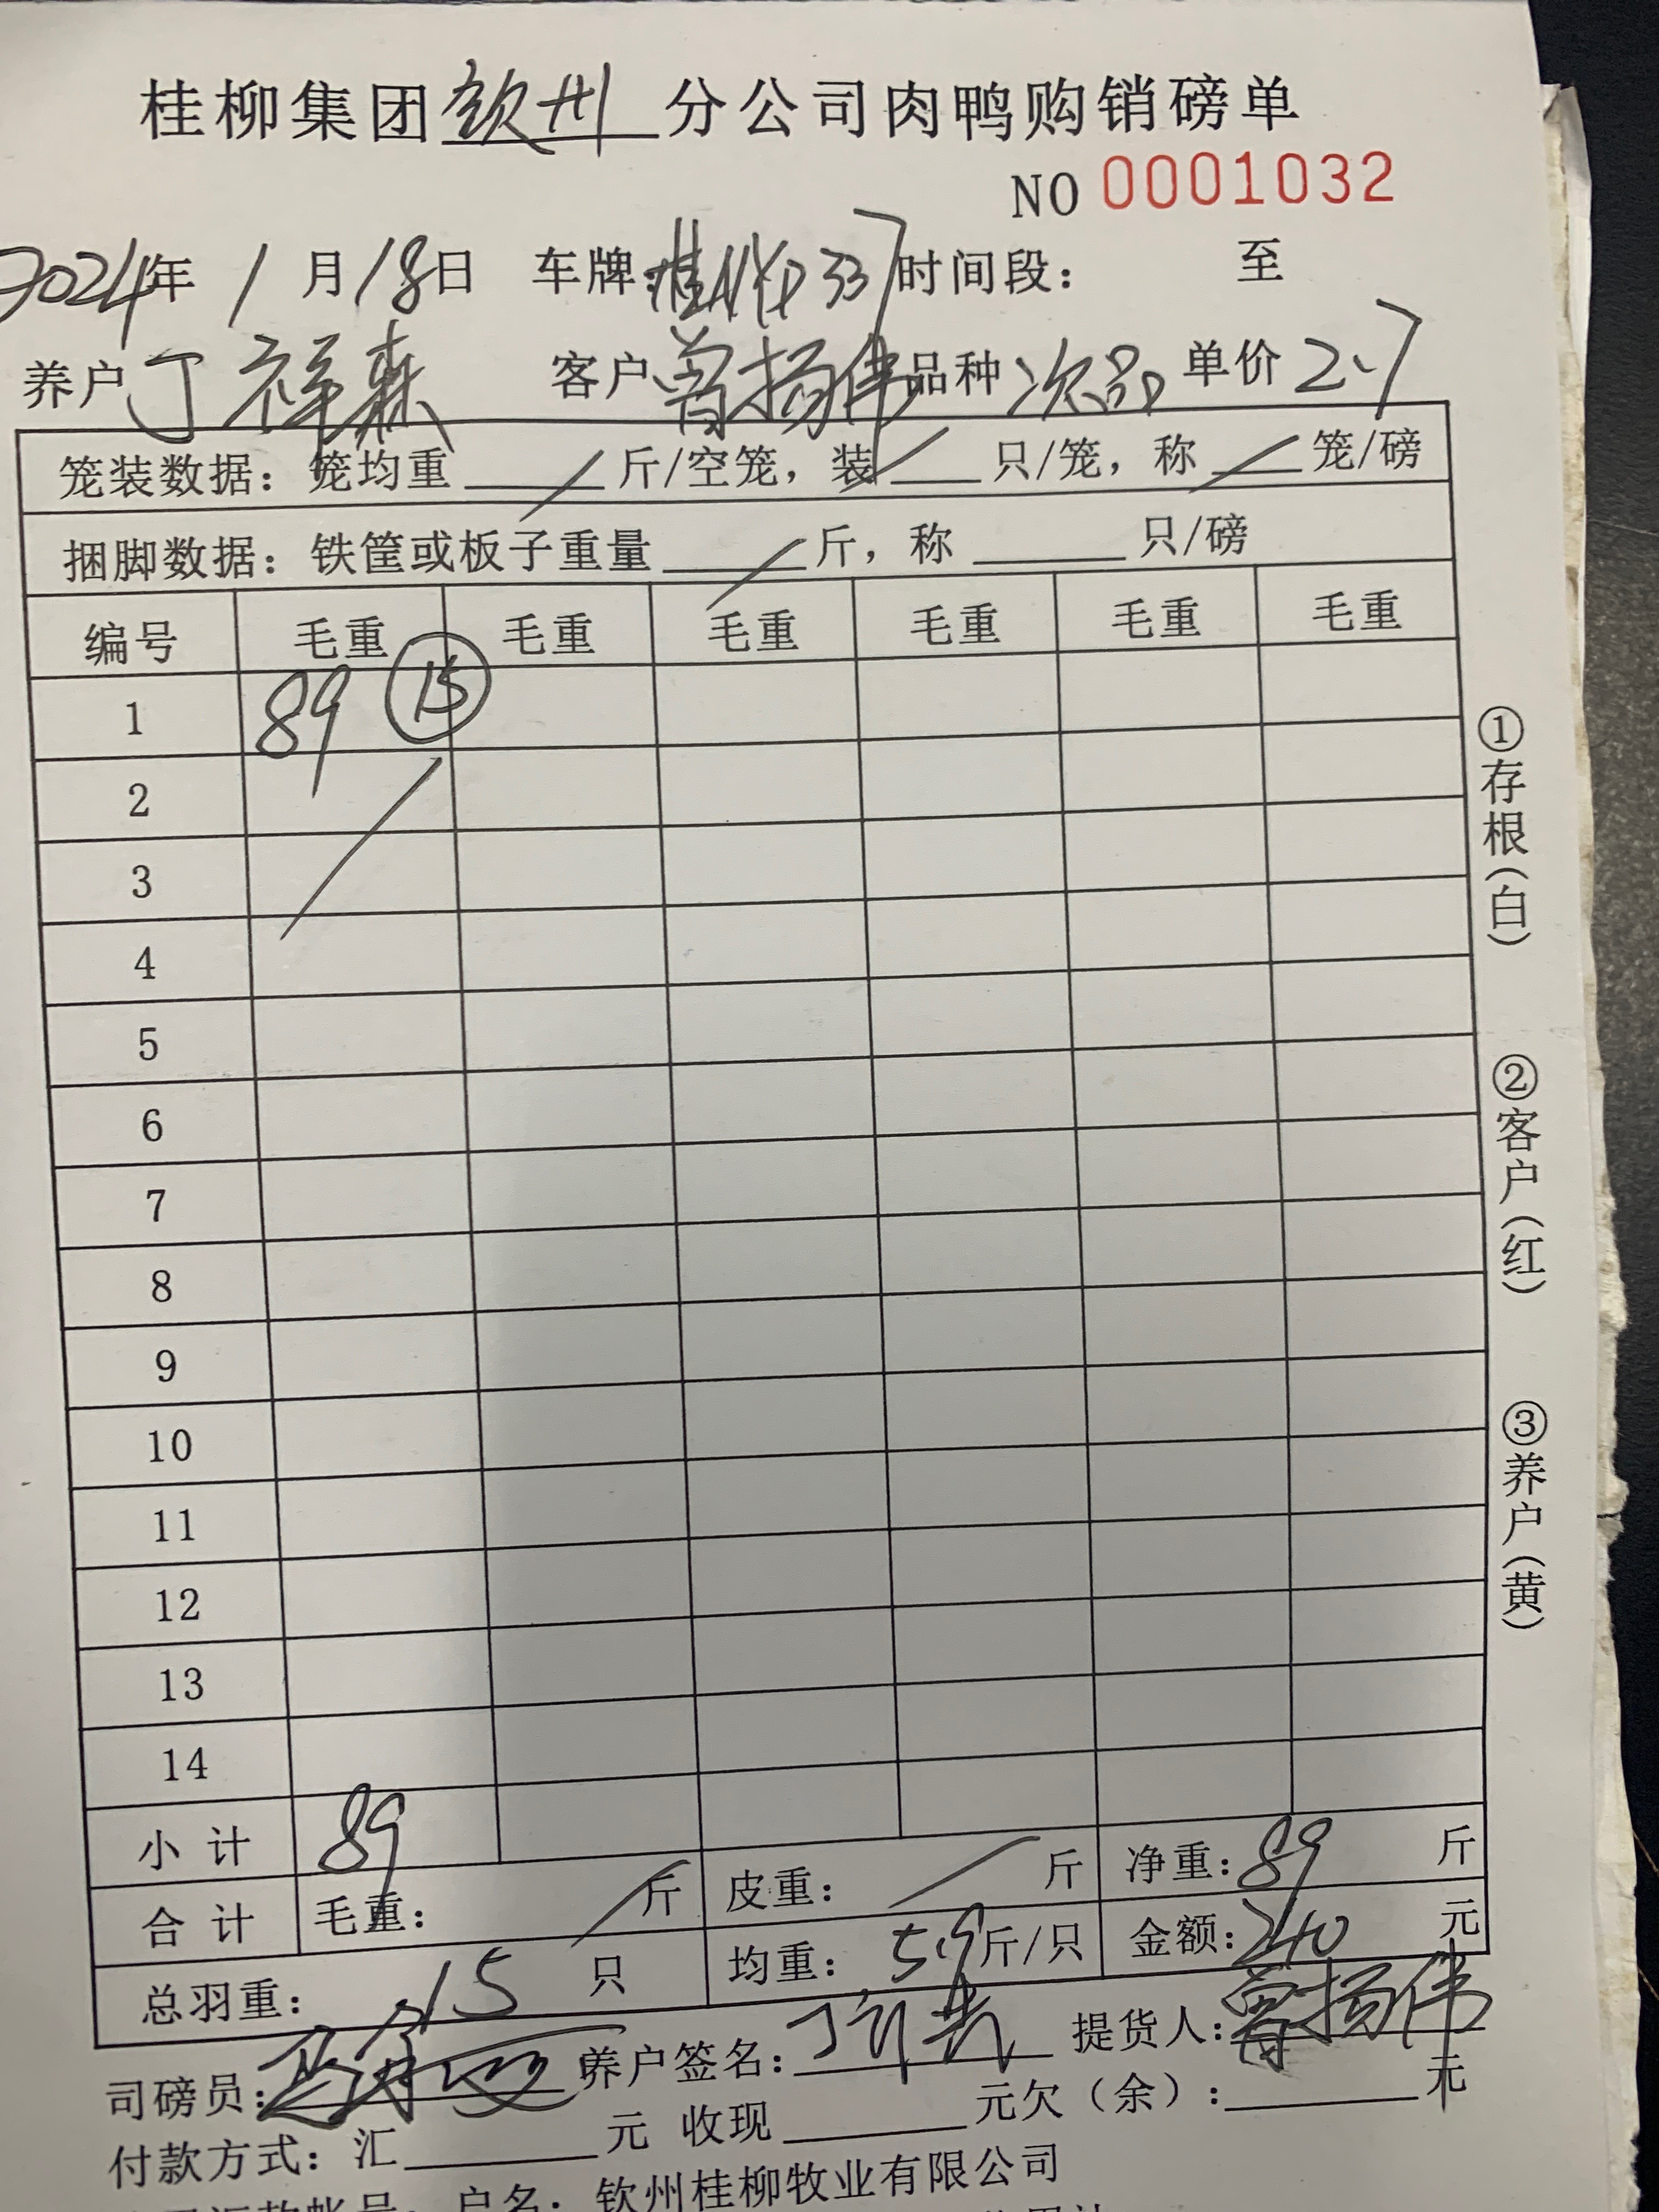 桂柳集团钦州分公司肉鸭购销磅单
NO 0001032
2024年 1 月 18日 车牌: 时间段: 至
养户 丁祥森 客户 曾扬伟 品种 次品 单价 2.7
笼装数据: 笼均重 / 斤/空笼, 装 / 只/笼, 称 / 笼/磅
捆脚数据: 铁筐或板子重量 / 斤, 称 只/磅
编号 毛重 毛重 毛重 毛重 毛重 毛重
1 89 ⑮
2
3
4
5
6
7
8
9
10
11
12
13
14
小计 89
合计 毛重: / 斤 皮重: / 斤 净重: 89 斤
总羽重: 15 只 均重: 5.9 斤/只 金额: 240 元
司磅员: 养户签名: 提货人: 曾扬伟
付款方式: 汇 元 收现 元欠(余): 元
户名: 钦州桂柳牧业有限公司
①存根(白)
②客户(红)
③养户(黄)